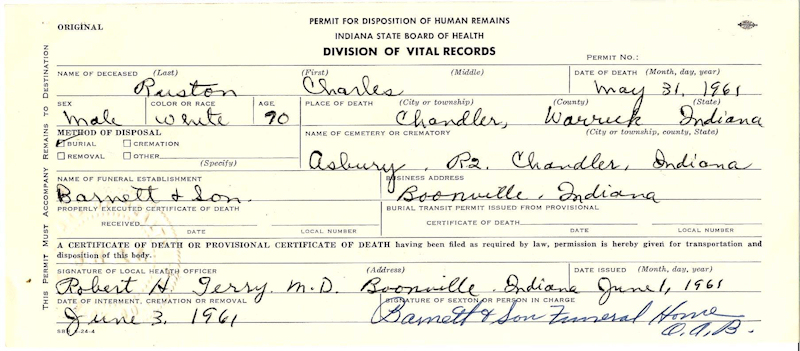 ORIGINAL
PERMIT FOR DISPOSITION OF HUMAN REMAINS
INDIANA STATE BOARD OF HEALTH
DIVISION OF VITAL RECORDS
PERMIT NO.:
THIS PERMIT MUST ACCOMPANY REMAINS TO DESTINATION
NAME OF DECEASED (Last) (First) (Middle) DATE OF DEATH (Month, day, year)
Ruston Charles May 31, 1961
SEX COLOR OR RACE AGE PLACE OF DEATH (City or township) (County) (State)
Male White 90 Chandler, Warrick Indiana
METHOD OF DISPOSAL NAME OF CEMETERY OR CREMATORY (City or township, county, State)
BURIAL CREMATION
REMOVAL OTHER
(Specify)
Asbury, R2. Chandler, Indiana
NAME OF FUNERAL ESTABLISHMENT BUSINESS ADDRESS
Barnett & Son. Boonville, Indiana
PROPERLY EXECUTED CERTIFICATE OF DEATH BURIAL TRANSIT PERMIT ISSUED FROM PROVISIONAL
RECEIVED CERTIFICATE OF DEATH
DATE LOCAL NUMBER DATE LOCAL NUMBER
A CERTIFICATE OF DEATH OR PROVISIONAL CERTIFICATE OF DEATH having been filed as required by law, permission is hereby given for transportation and
disposition of this body.
SIGNATURE OF LOCAL HEALTH OFFICER (Address) DATE ISSUED (Month, day, year)
Robert H. Terry. M.D. Boonville. Indiana June 1, 1961
DATE OF INTERMENT, CREMATION OR REMOVAL SIGNATURE OF SEXTON OR PERSON IN CHARGE
June 3, 1961 Barnett & Son Funeral Home
O.A.B.